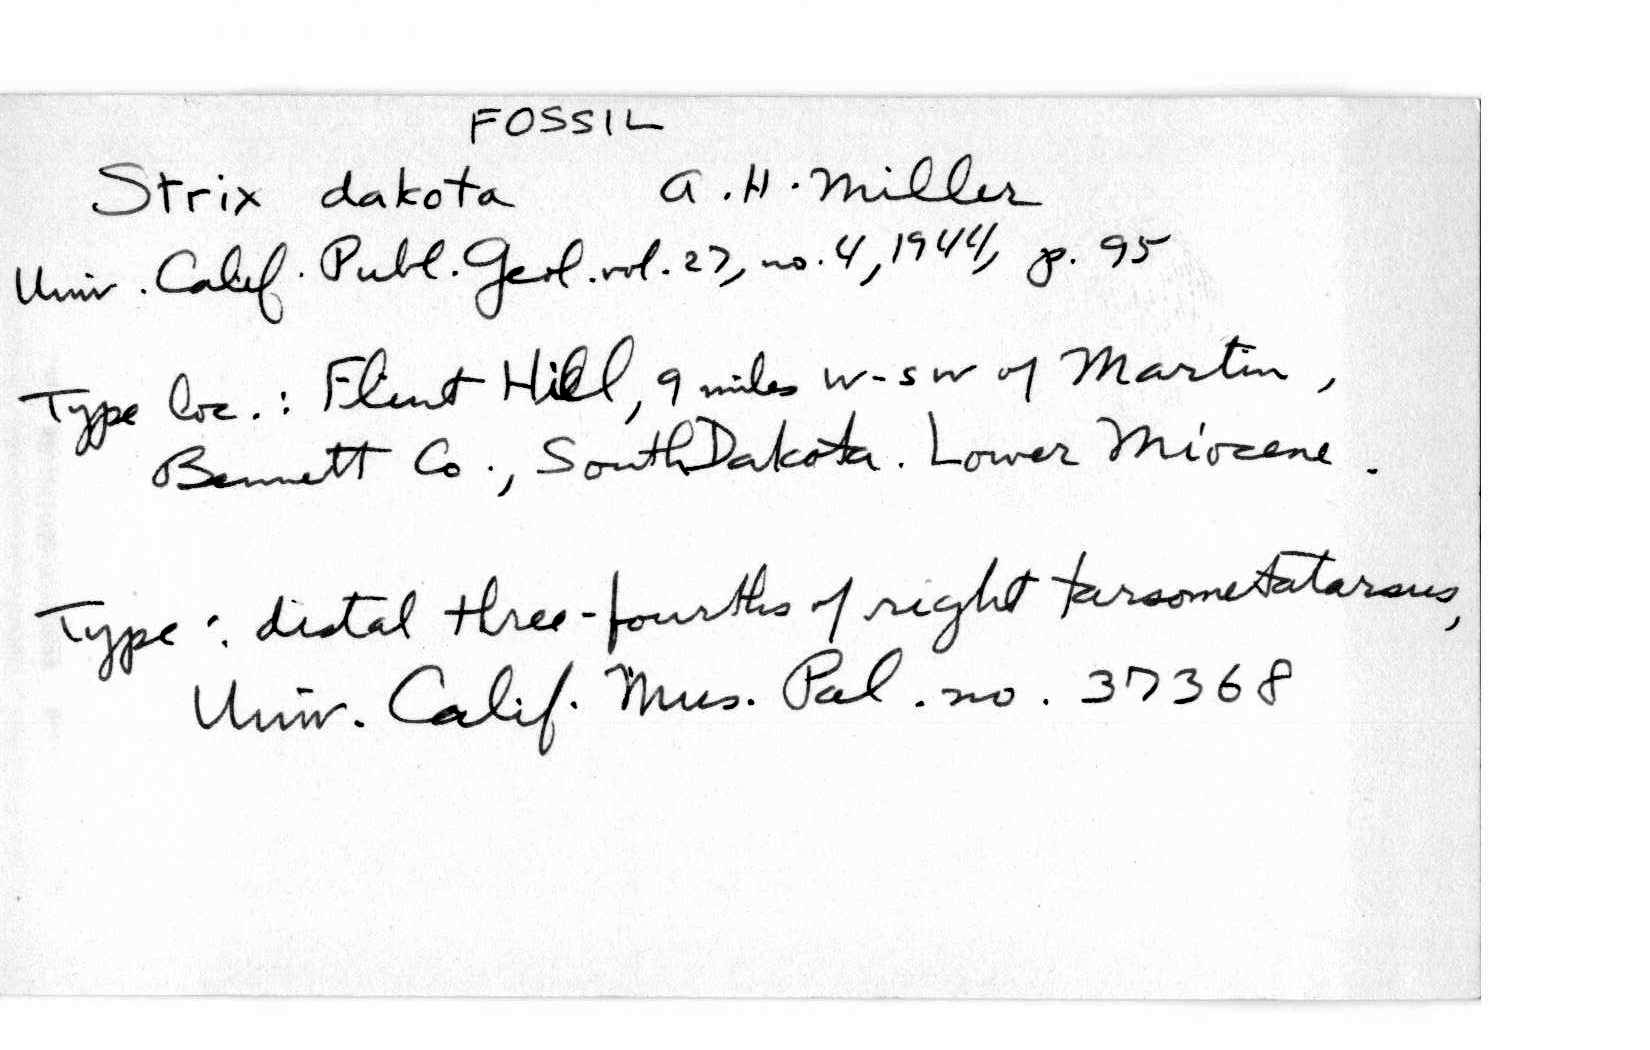 FOSSIL
Strix dakota A.H. Miller
Univ. Calif. Publ. Geol. vol. 27, no. 4, 1944, p. 95
Type loc.: Flint Hill, 9 miles W-SW of Martin,
Bennett Co., South Dakota. Lower Miocene.
Type: distal three-fourths of right tarsometatarsus,
Univ. Calif. Mus. Pal. no. 37368